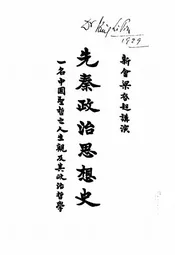 新會梁啓超講演
先秦政治思想史
一名中國聖哲之人生觀及其政治哲學
1929